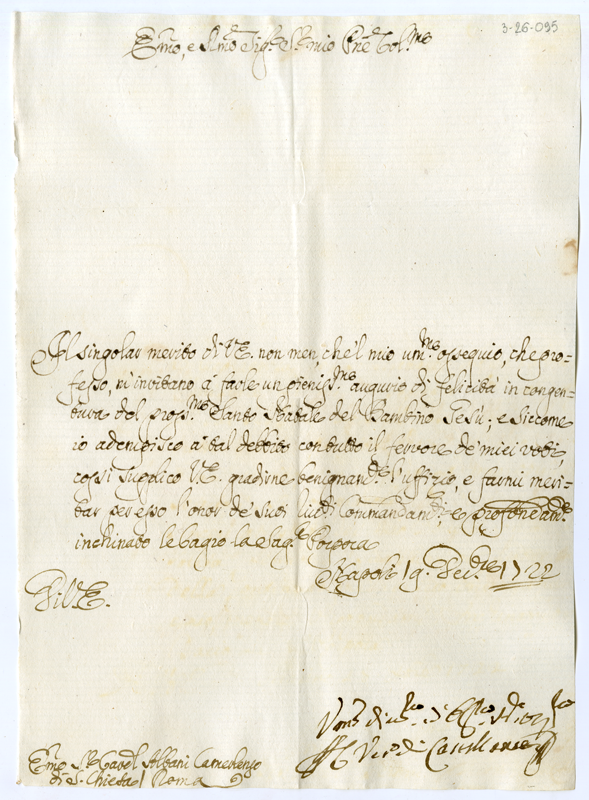 3-26-095
Em̃o, e Rm̃o Sig.re S.r mio Pñe Col.mo
Il singolar merito di V.E. non men, che'l mio um.mo ossequio, che pro=
fesso, m'invitano à farle un pieniss.mo augurio di felicità in congen=
tura del pross.mo Santo Natale del Bambino Gesù; e siccome
io adempisco à tal debbito con tutto il fervore de' miei voti,
cossì suplico V.E. gradirne benignam.te l'uffizio, e farmi meri=
tar per esso l'onor de' suoi Commandam.ti, e profondam.te
inchinato le bagio la Sag.ta Porpora
Napoli 19. Decre 1722
Di V.E.
Em̃o S.r Card.l Albani Camerlengo
di S. Chiesa / Roma